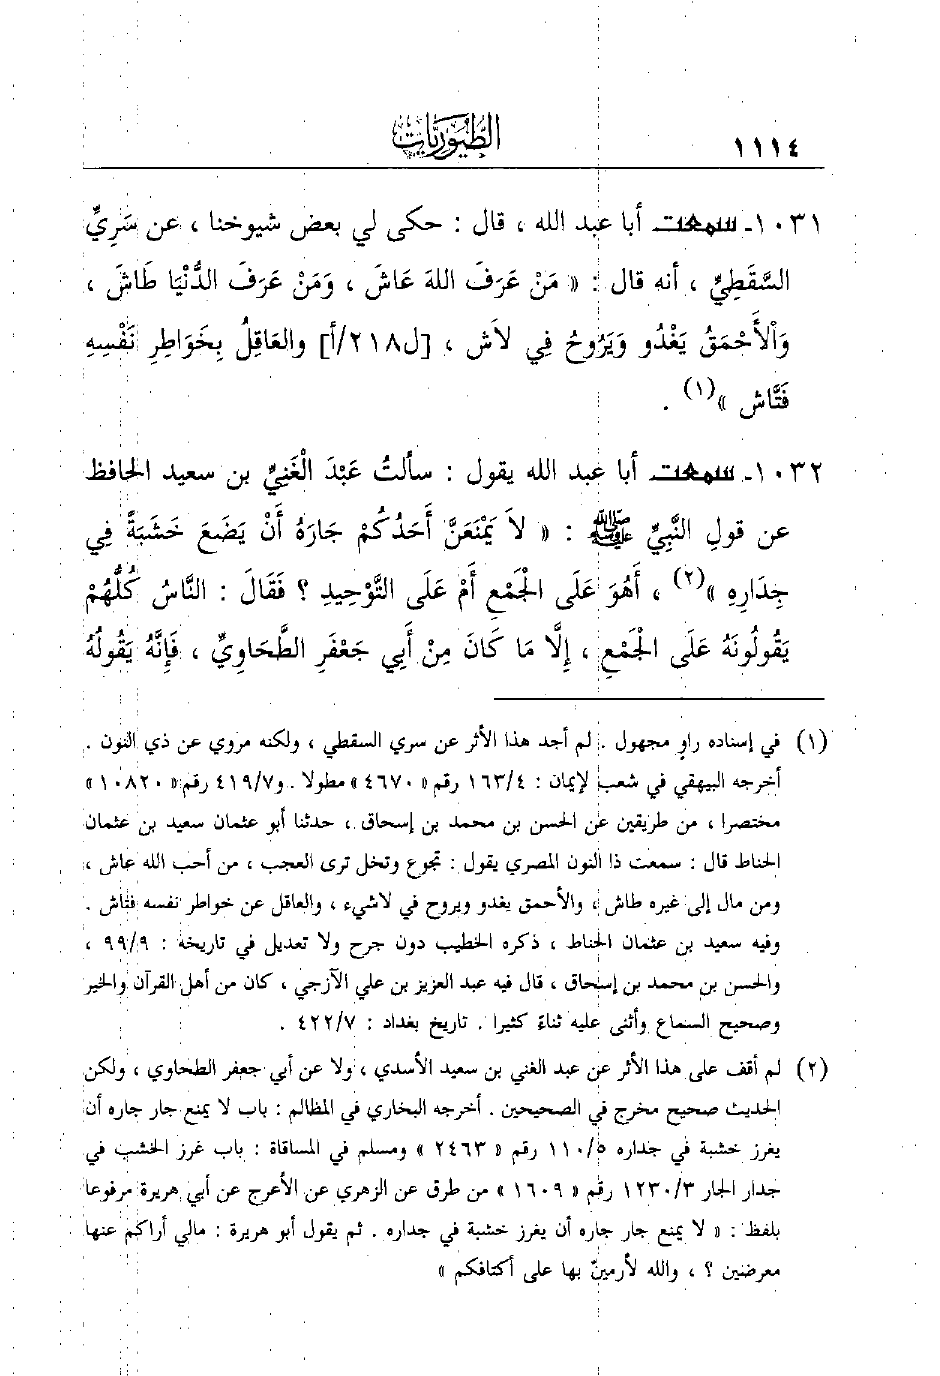 ١١١٤
الطيوريات
١٠٣١- سمعت أبا عبد الله ، قال : حكى لي بعض شيوخنا ، عن سَرِيٍّ
السَّقَطِيِّ ، أنه قال : « مَنْ عَرَفَ اللهَ عَاشَ ، وَمَنْ عَرَفَ الدُّنْيَا طَاشَ ،
وَاْلأَحْمَقُ يَغْدُو وَيَرُوحُ فِي لاَش ، [ل٢١٨/أ] والعَاقِلُ بِخَوَاطِرِ نَفْسِهِ
فَتَّاش »(١) .
١٠٣٢- سمعت أبا عبد الله يقول : سألتُ عَبْدَ الْغَنِيِّ بن سعيد الحافظ
عن قولِ النَّبِيِّ ﷺ : « لاَ يَمْنَعَنَّ أَحَدُكُمْ جَارَهُ أَنْ يَضَعَ خَشَبَةً فِي
جِدَارِهِ »(٢) ، أَهُوَ عَلَى الْجَمْعِ أَمْ عَلَى التَّوْحِيدِ ؟ فَقَالَ : النَّاسُ كُلُّهُمْ
يَقُولُونَهُ عَلَى الْجَمْعِ ، إِلَّا مَا كَانَ مِنْ أَبِي جَعْفَرِ الطَّحَاوِيِّ ، فَإِنَّهُ يَقُولُهُ
(١) في إسناده راوٍ مجهول . لم أجد هذا الأثر عن سري السقطي ، ولكنه مروي عن ذي النون .
أخرجه البيهقي في شعب لإيمان : ١٦٣/٤ رقم« ٤٦٧٠ »مطولا . و٤١٩/٧ رقم« ١٠٨٢٠ »
مختصرا ، من طريقين عن الحسن بن محمد بن إسحاق ، حدثنا أبو عثمان سعيد بن عثمان
الحناط قال : سمعت ذا النون المصري يقول : تجوع وتخل ترى العجب ، من أحب الله عاش ،
ومن مال إلى غيره طاش ، والأحمق يغدو ويروح في لاشيء ، والعاقل عن خواطر نفسه فتاش .
وفيه سعيد بن عثمان الحناط ، ذكره الخطيب دون جرح ولا تعديل في تاريخه : ٩٩/٩ ،
والحسن بن محمد بن إسحاق ، قال فيه عبد العزيز بن علي الآزجي ، كان من أهل القرآن والخير
وصحيح السماع وأثنى عليه ثناءً كثيرا . تاريخ بغداد : ٤٢٢/٧ .
(٢) لم أقف على هذا الأثر عن عبد الغني بن سعيد الأسدي ، ولا عن أبي جعفر الطحاوي ، ولكن
الحديث صحيح مخرج في الصحيحين . أخرجه البخاري في المظالم : باب لا يمنع جار جاره أن
يغرز خشبة في جداره ١١٠/٥ رقم « ٢٤٦٣ » ومسلم في المساقاة : باب غرز الخشب في
جدار الجار ١٢٣٠/٣ رقم « ١٦٠٩ » من طرق عن الزهري عن الأعرج عن أبي هريرة مرفوعا
بلفظ : « لا يمنع جار جاره أن يغرز خشبة في جداره . ثم يقول أبو هريرة : مالي أراكم عنها
معرضنين ؟ ، والله لأرمينّ بها على أكتافكم »